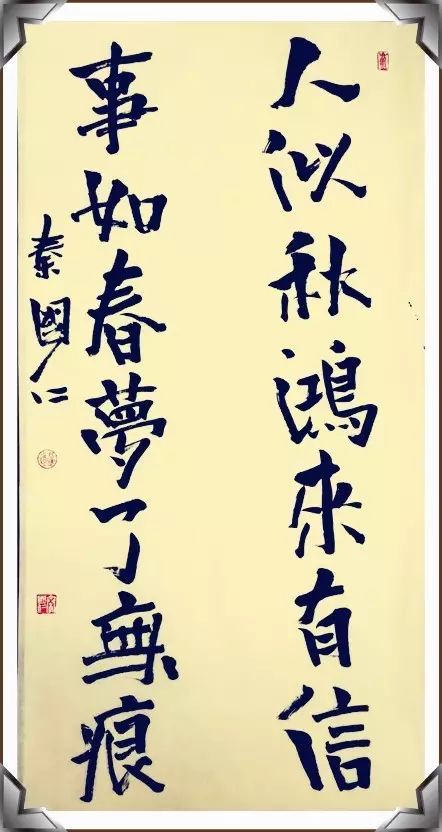 人似秋鴻來有信
事如春夢了無痕
秦國仁